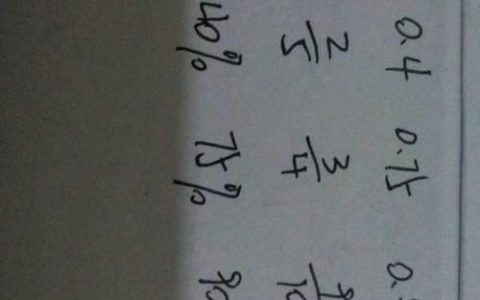 0.4 0.75 0.
2/5 3/4 9/10
40% 75% 90